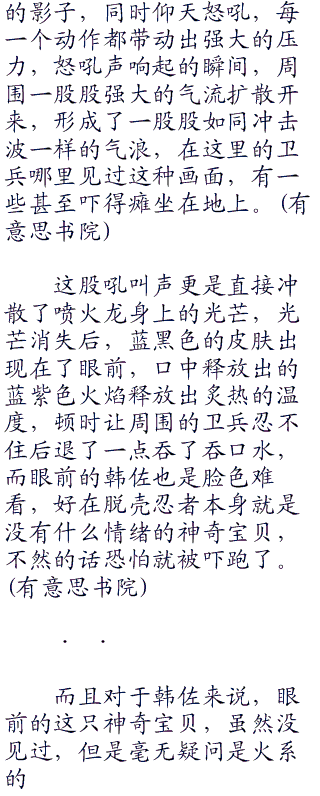 的影子，同时仰天怒吼，每
一个动作都带动出强大的压
力，怒吼声响起的瞬间，周
围一股股强大的气流扩散开
来，形成了一股股如同冲击
波一样的气浪，在这里的卫
兵哪里见过这种画面，有一
些甚至吓得瘫坐在地上。(有
意思书院)
这股吼叫声更是直接冲
散了喷火龙身上的光芒，光
芒消失后，蓝黑色的皮肤出
现在了眼前，口中释放出的
蓝紫色火焰释放出炙热的温
度，顿时让周围的卫兵忍不
住后退了一点吞了吞口水，
而眼前的韩佐也是脸色难
看，好在脱壳忍者本身就是
没有什么情绪的神奇宝贝，
不然的话恐怕就被吓跑了。
(有意思书院)
· ·
而且对于韩佐来说，眼
前的这只神奇宝贝，虽然没
见过，但是毫无疑问是火系
的